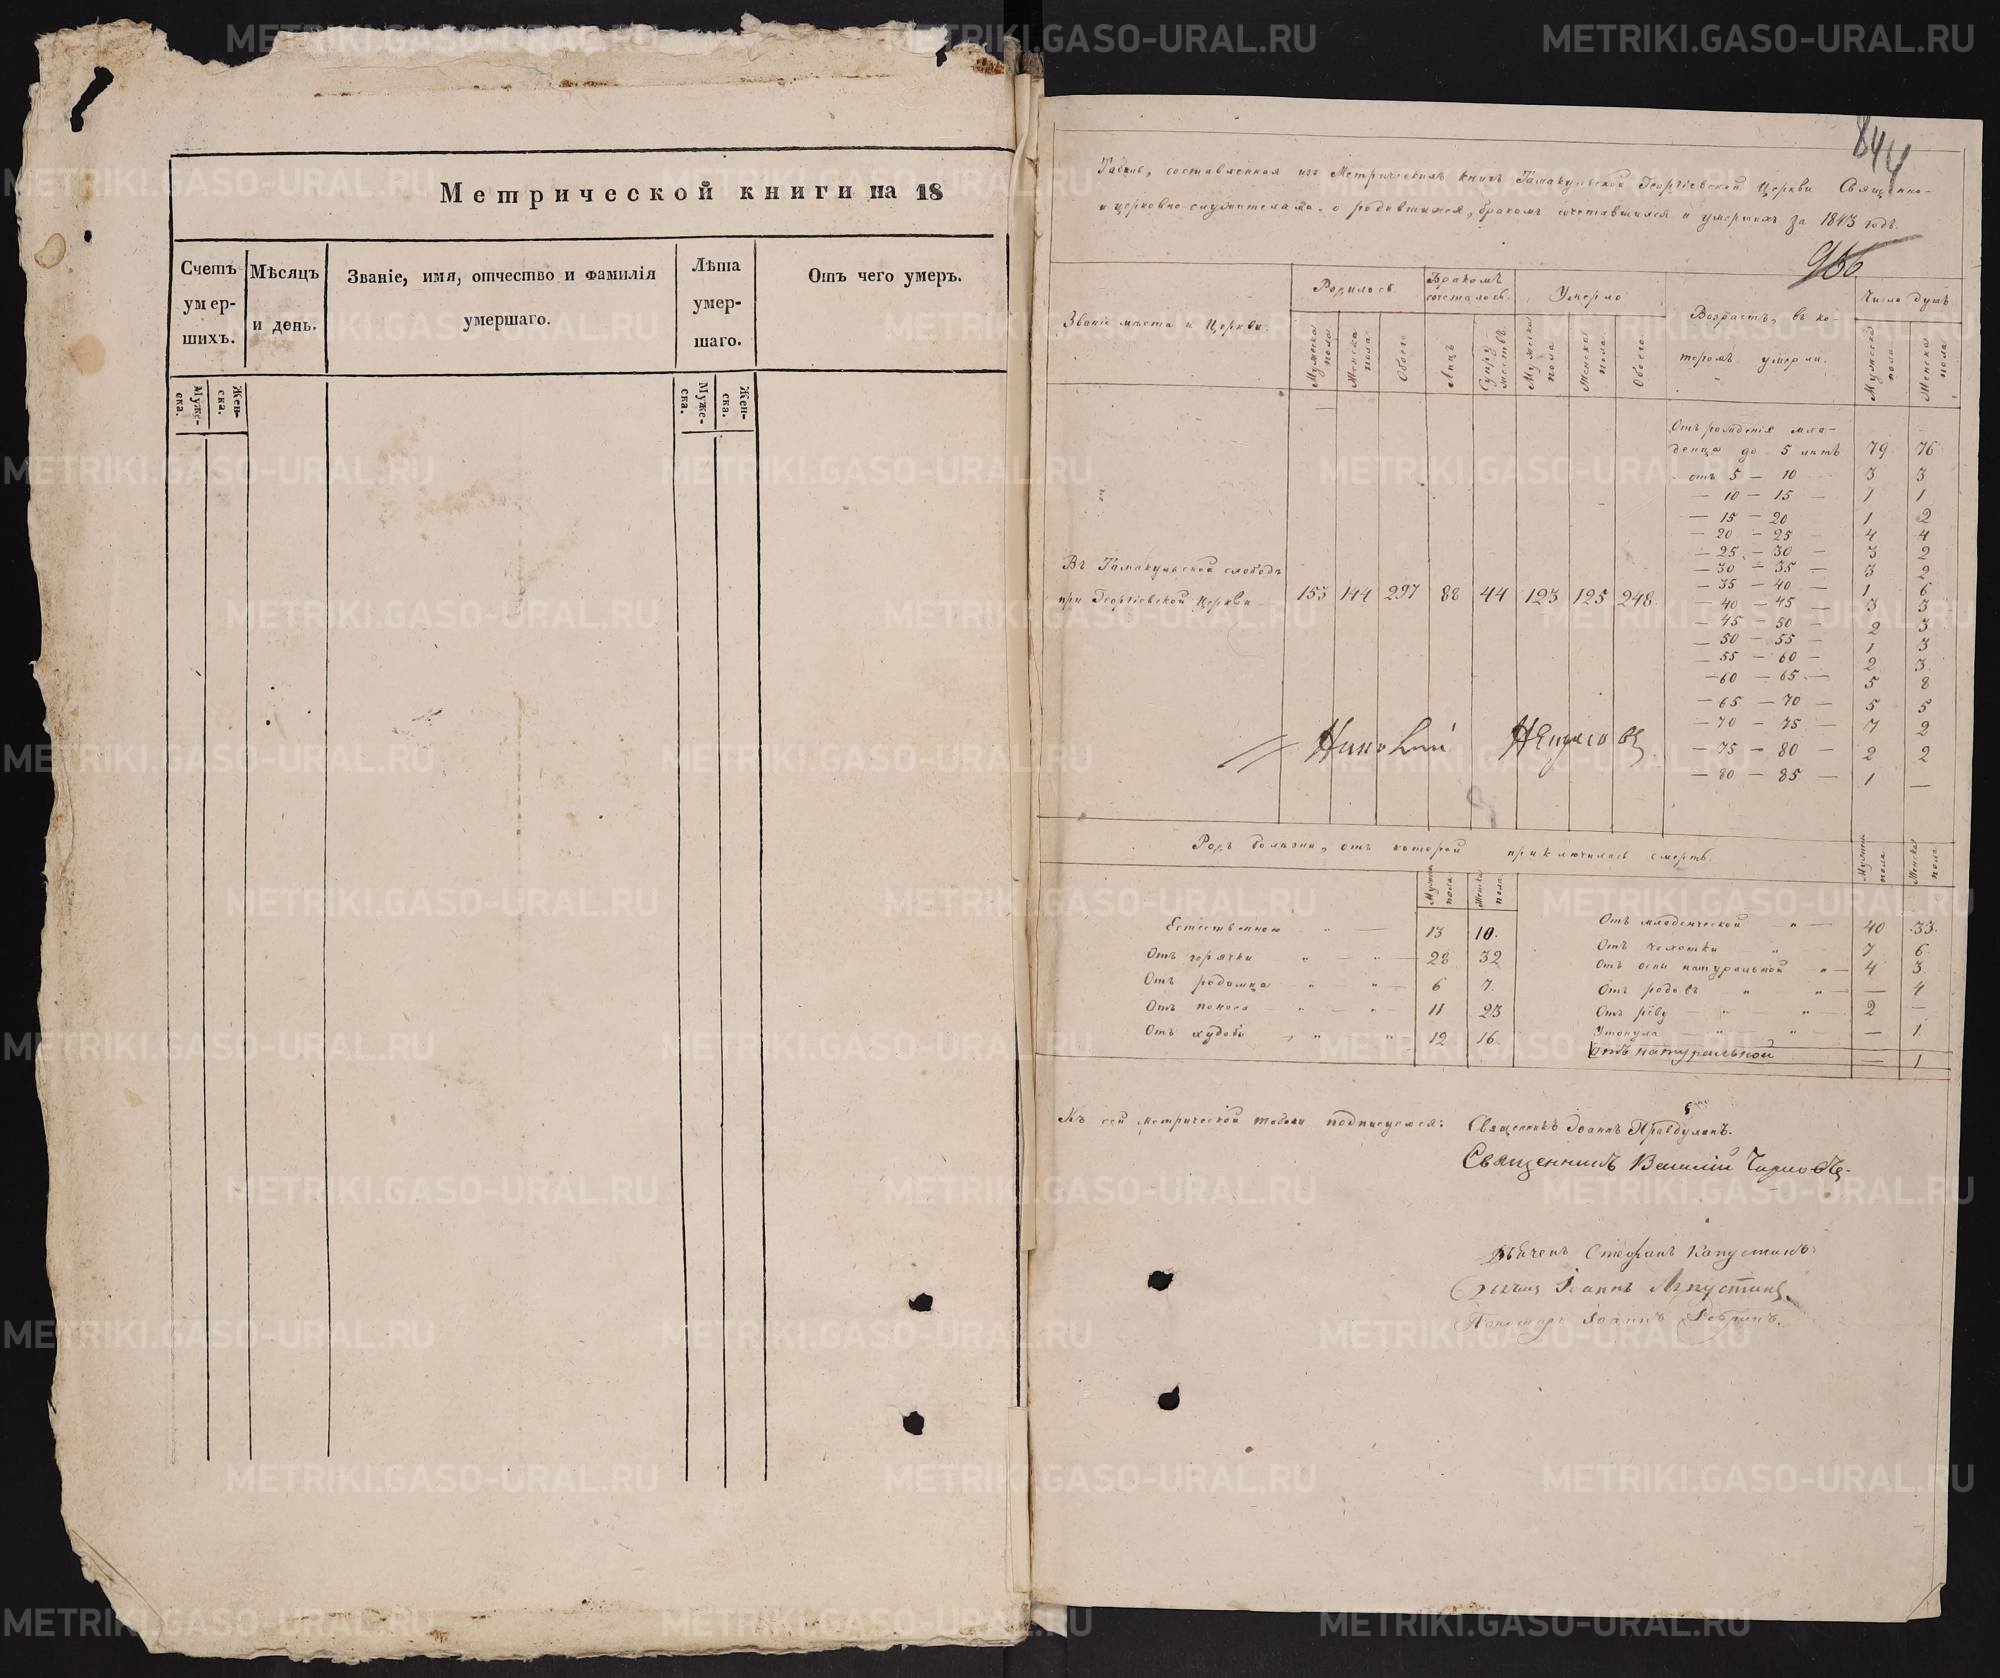 Метрической книги на 18
Счетъ умершихъ.
Мѣсяцъ и день.
Званіе, имя, отчество и фамилія умершаго.
Лѣта умершаго.
Отъ чего умеръ.
Мужеска.
Женска.
Мужеска.
Женска.
844
Табель, составленная изъ Метрическихъ книгъ Тамакульской Георгіевской Церкви Священно-
и церковно-служителями, о родившихся, бракомъ сочетавшихся и умершихъ за 1843 годъ.
956
Званіе мѣста и Церкви.
Родилось.
Бракомъ сочеталось.
Умерло
Возрастъ, въ ко-
торомъ умерли.
Число душъ
Мужеска пола
Женска пола
Обоего
Лицъ
Супружествъ
Мужеска пола
Женска пола
Обоего
Мужеска пола
Женска пола
Отъ рожденія мла-
денца до 5 лѣтъ 79 76
отъ 5 — 10 3 3
— 10 — 15 — 1 1
— 15 — 20 1 2
— 20 — 25 — 4 4
— 25 — 30 — 3 2
— 30 — 35 — 3 2
— 35 — 40 — 1 6
— 40 — 45 — 3 3
— 45 — 50 — 2 3
— 50 — 55 — 1 3
— 55 — 60 — 2 3
— 60 — 65 — 5 8
— 65 — 70 — 5 5
— 70 — 75 — 7 2
— 75 — 80 — 2 2
— 80 — 85 — 1 —
Въ Тамакульской слободѣ
при Георгіевской Церкви — 153 144 297 88 44 123 125 248
Родъ болѣзни, отъ которой приключилась смерть.
Мужеска пола
Женска пола
Мужеска пола
Женска пола
Естественною " — 13 10.
Отъ горячки " — " — 28 32
Отъ родимца " — " — 6 7.
Отъ поноса — " — " — 11 23
Отъ худобы " " 12 16.
Отъ младенческой " — 40 33.
Отъ чахотки " 7 6.
Отъ оспы натуральной " — 4 3.
Отъ родовъ " " — — 4
Отъ рѣву — " — " — 2 —
Утонула — " — " — — 1
Отъ натуральной — 1
Къ сей метрической табели подписуемся: Священникъ Іоаннъ Правдухинъ.
Священникъ Василій
Дьяченъ Стефанъ Капустинъ.
Іоаннъ
Пономарь Іоаннъ
METRIKI.GASO-URAL.RU